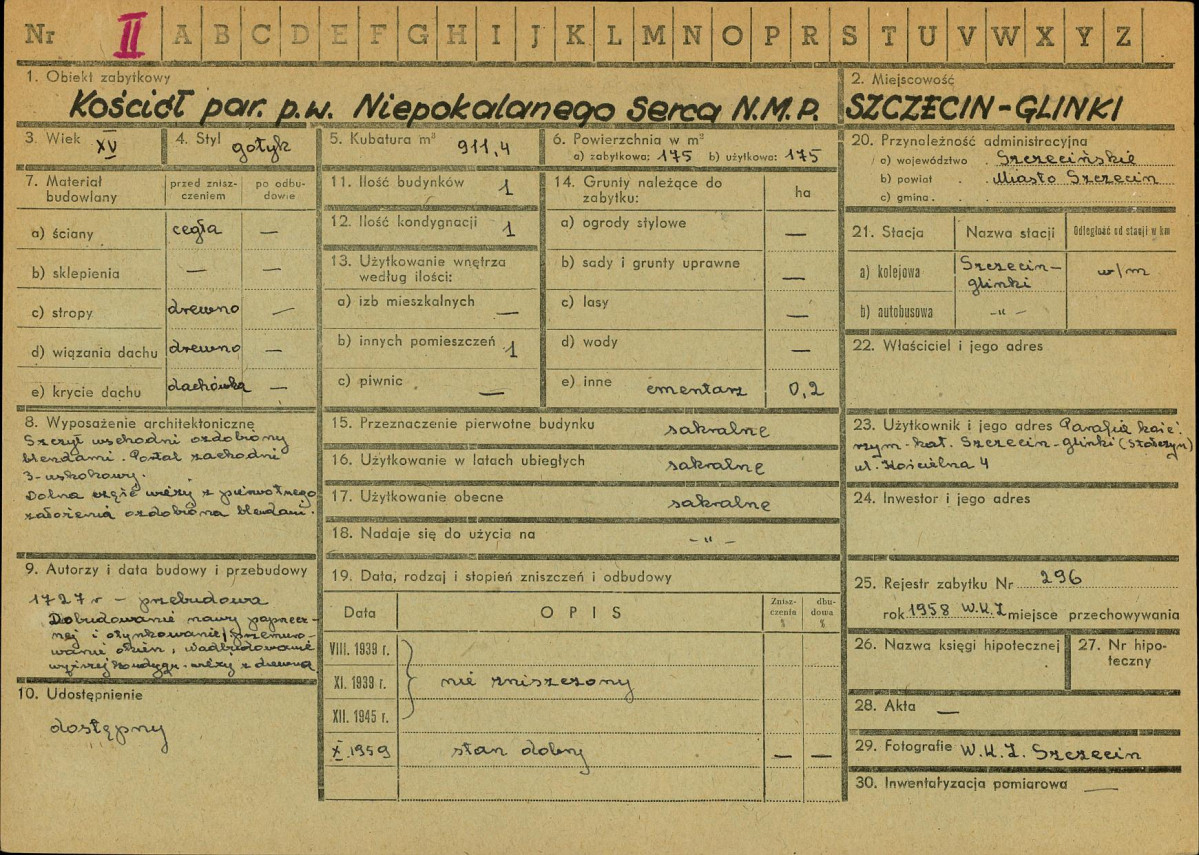 Nr II A B C D E F G H I J K L M N O P R S T U V W X Y Z
1. Obiekt zabytkowy
Kościół par. p.w. Niepokalanego Serca N.M.P.
2. Miejscowość
SZCZECIN-GLINKI
3. Wiek XV
4. Styl gotyk
5. Kubatura m³ 911,4
6. Powierzchnia w m²
a) zabytkowa: 175 b) użytkowa: 175
7. Materiał budowlany
przed znisz-
czeniem
po odbu-
dowie
a) ściany cegła —
b) sklepienia — —
c) stropy drewno —
d) wiązania dachu drewno —
e) krycie dachu dachówka —
8. Wyposażenie architektoniczne
Szczyt wschodni ozdobiony
blendami. Portal zachodni
3-uskokowy.
Dolna część wieży z pierwotnego
założenia ozdobiona blendami.
9. Autorzy i data budowy i przebudowy
1727 r — przebudowa
Dobudowanie nawy poprzecz-
nej i otynkowanie, przemuro-
wanie okien, nadbudowanie
wyższej kondygn. wieży z drewna
10. Udostępnienie
dostępny
11. Ilość budynków 1
12. Ilość kondygnacji 1
13. Użytkowanie wnętrza
według ilości:
a) izb mieszkalnych —
b) innych pomieszczeń 1
c) piwnic —
14. Grunty należące do
zabytku:
ha
a) ogrody stylowe —
b) sady i grunty uprawne —
c) lasy —
d) wody —
e) inne cmentarz 0,2
15. Przeznaczenie pierwotne budynku sakralne
16. Użytkowanie w latach ubiegłych sakralne
17. Użytkowanie obecne sakralne
18. Nadaje się do użycia na -"-
19. Data, rodzaj i stopień zniszczeń i odbudowy
Data OPIS
Znisz-
czenia
%
dbu-
dowa
%
VIII. 1939 r.
XI. 1939 r. nie zniszczony
XII. 1945 r.
X. 1959 stan dobry — —
20. Przynależność administracyjna
a) województwo Szczecińskie
b) powiat Miasto Szczecin
c) gmina
21. Stacja Nazwa stacji Odległość od stacji w km
a) kolejowa Szczecin-
glinki w/m
b) autobusowa -"-
22. Właściciel i jego adres
23. Użytkownik i jego adres Parafia
rzym-kat. Szczecin-glinki (Stołczyn)
ul. Kościelna 4
24. Inwestor i jego adres
25. Rejestr zabytku Nr 296
rok 1958 W.K.Z miejsce przechowywania
26. Nazwa księgi hipotecznej
27. Nr hipo-
teczny
28. Akta —
29. Fotografie W.K.Z. Szczecin
30. Inwentaryzacja pomiarowa —